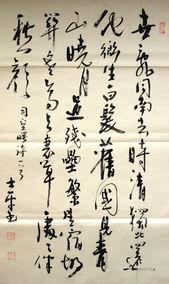 世亂同南去時清獨北還
他鄉生白髮舊國見青
山曉月過殘壘繁星宿故
關寒禽與衰草處處伴
愁顏
司空曙詩